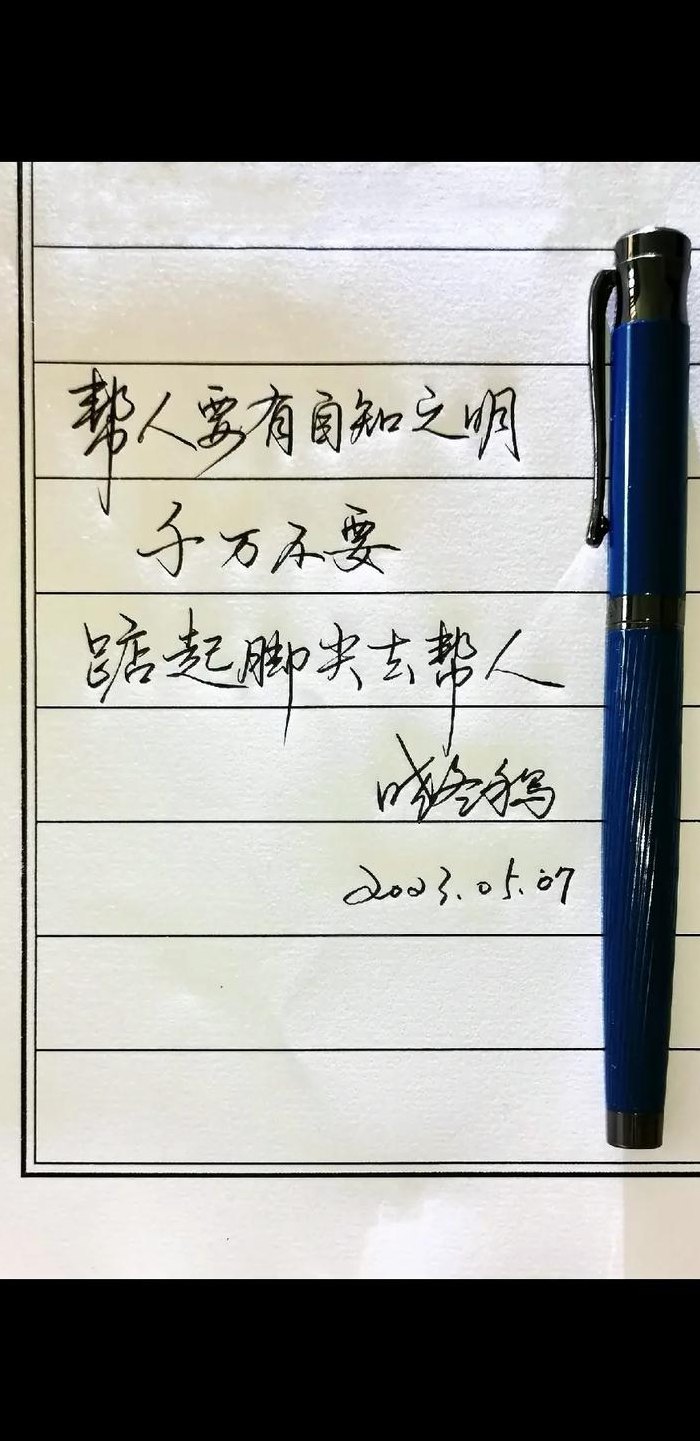 帮人要有自知之明
千万不要
踮起脚尖去帮人
2023.05.07